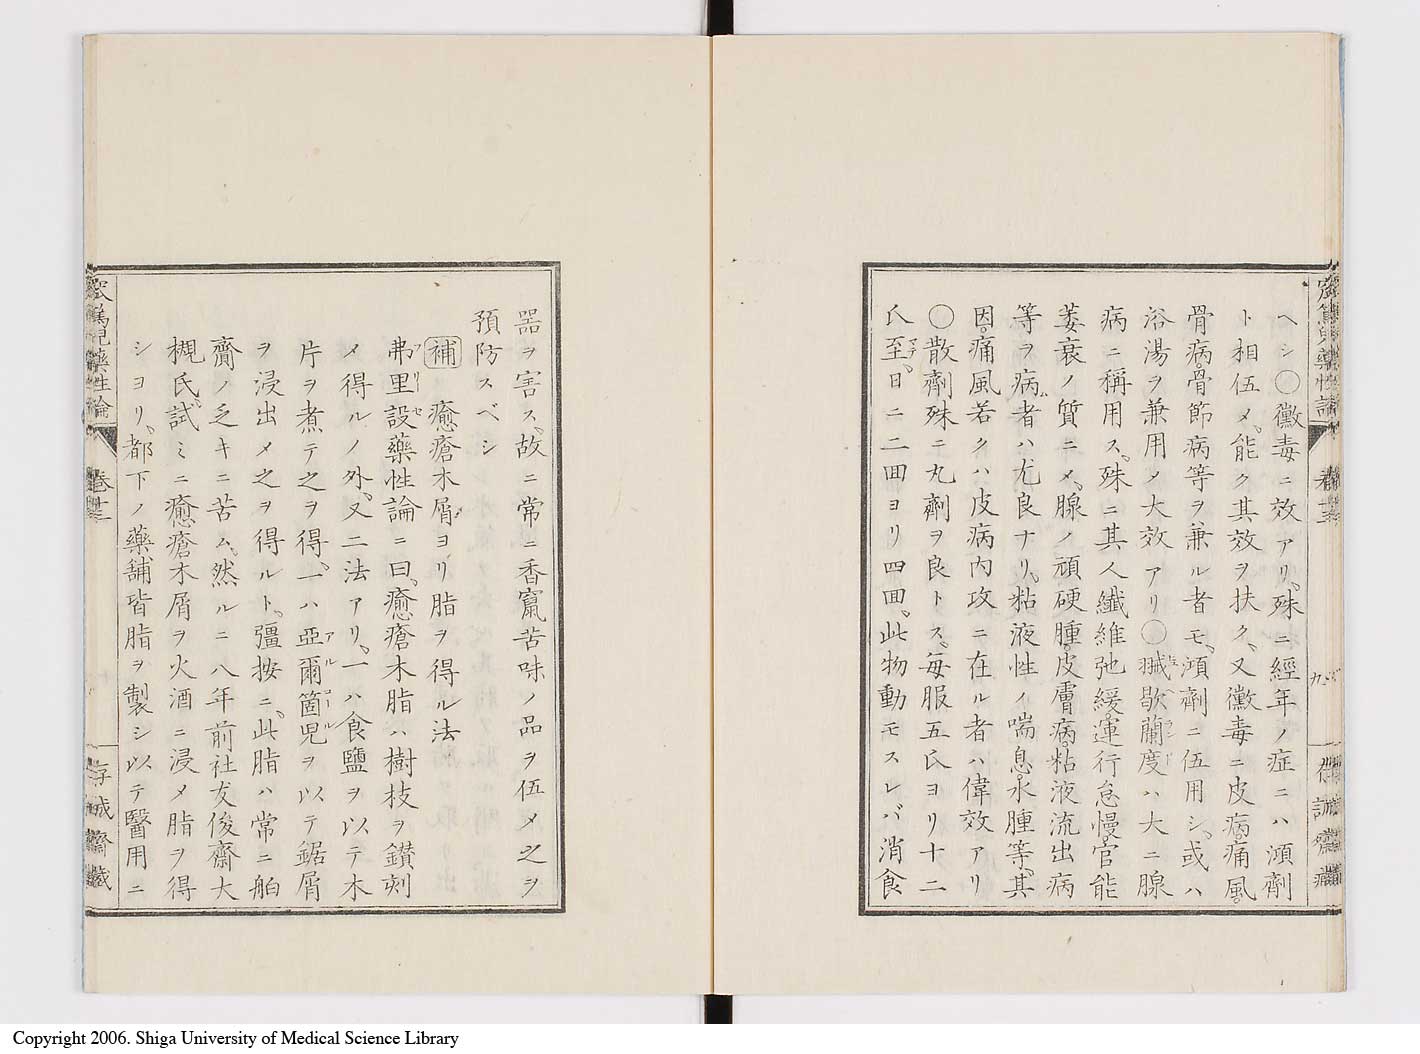 ヘシ〇黴毒ニ效アリ。殊ニ經年ノ症ニハ澒劑
ト相伍メ。能ク其效ヲ扶ク。又黴毒ニ皮病。痛風。
骨病。骨節病等ヲ兼ル者モ。澒劑ニ伍用シ。或ハ
浴湯ヲ兼用メ大效アリ〇蝛歇蘭度ハ大ニ腺
病ニ稱用ス。殊ニ其人纖維弛緩運行怠慢。官能
萎衰ノ質ニメ。腺ノ頑硬腫。皮膚病。粘液流出病
等ヲ病ム者ハ尤良ナリ。粘液性ノ喘息。水腫等。其
因。痛風若クハ皮病内攻ニ在ル者ハ偉效アリ
〇散劑殊ニ丸劑ヲ良トス。毎服五氏ヨリ十二
氏至マデ。日ニ二囬ヨリ四囬。此物動モスレバ消食
藥性論
九
器ヲ害ス。故ニ常ニ香竄苦味ノ品ヲ伍メ之ヲ
預防スベシ
補 癒瘡木屑ヨリ脂ヲ得ル法
弗里設藥性論ニ曰。癒瘡木脂ハ樹枝ヲ鑚刻
メ得ルノ外。又二法アリ。一ハ食鹽ヲ以テ木
片ヲ煮テ之ヲ得。一ハ亞爾箇兒ヲ以テ鋸屑
ヲ浸出メ之ヲ得ルト。彊按ニ。此脂ハ常ニ舶
齎ノ乏キニ苦ム。然ルニ八年前社友俊齋大
槻氏試ミニ癒瘡木屑ヲ火酒ニ浸メ脂ヲ得
シヨリ。都下ノ藥舗皆脂ヲ製シ以テ醫用ニ
藥性論
卷廿二
存誠齋藏
Copyright 2006. Shiga University of Medical Science Library